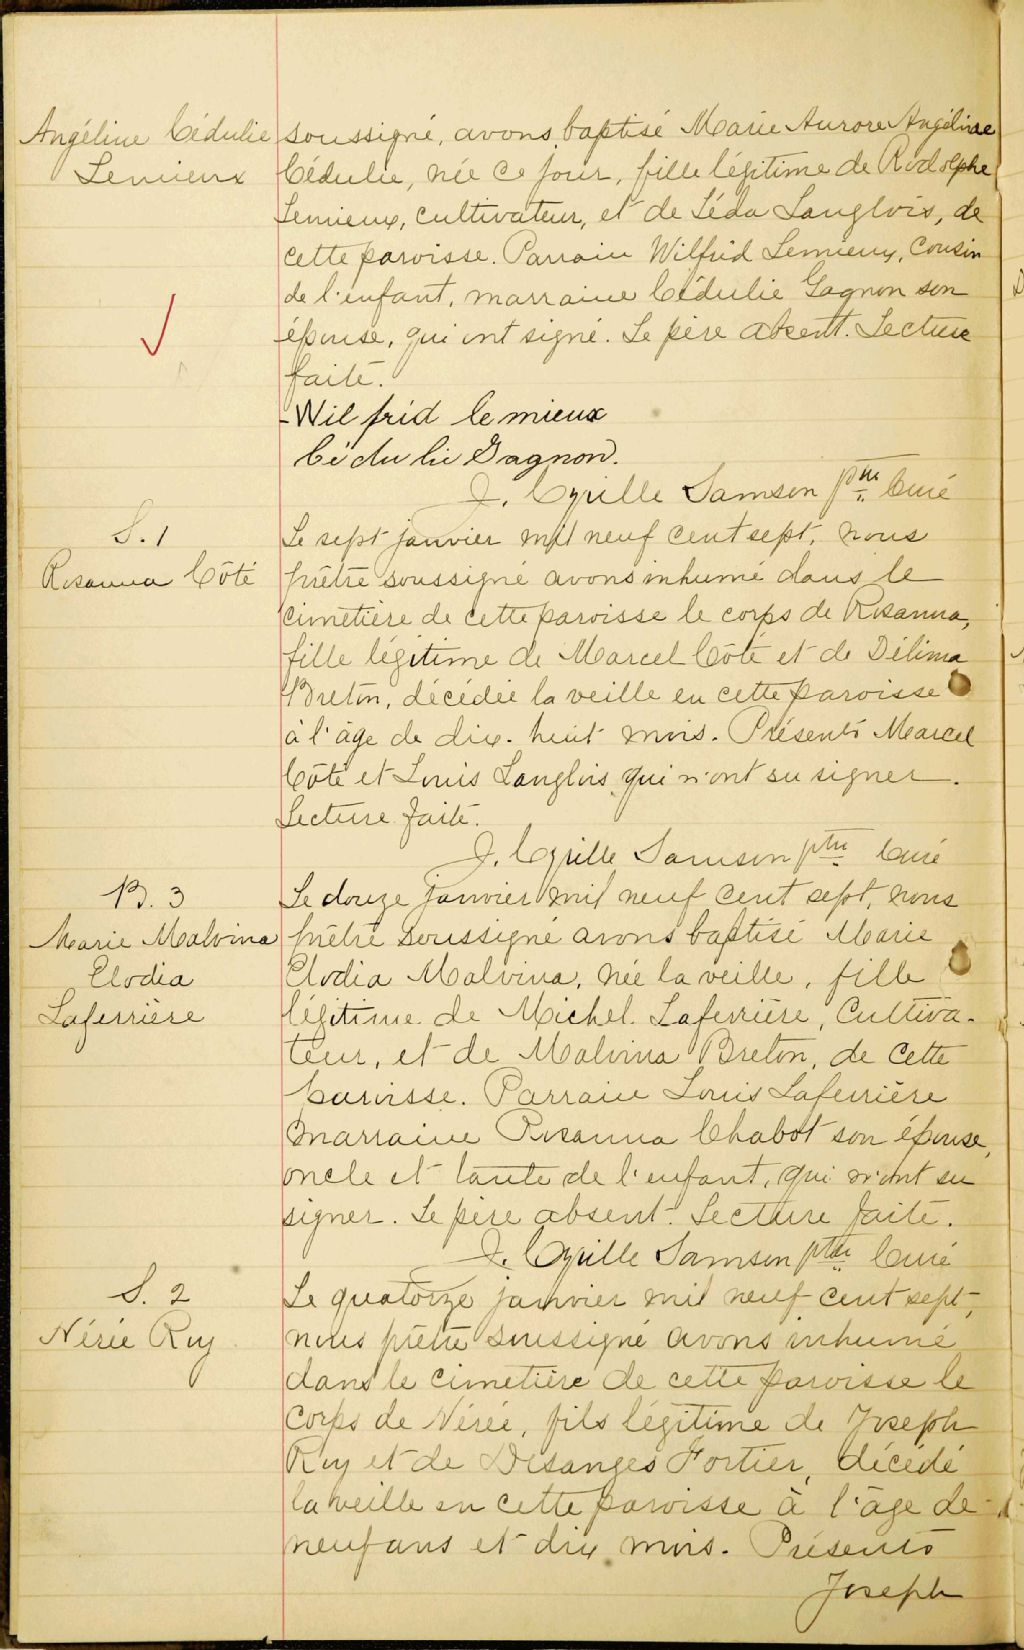 Angéline Cédulie
Lemieux
soussigné, avons baptisé Marie Aurore Angéline
Cédulie, née ce jour, fille légitime de Rodolphe
Lemieux, cultivateur, et de Léda Langlois, de
cette paroisse. Parrain Wilfrid Lemieux, cousin
de l'enfant, marraine Cédulie Gagnon son
épouse, qui ont signé. Le père absent. Lecture
faite.
-Wilfrid lemieux
Cédulie Gagnon.
J. Cyrille Samson ptre Curé
S. 1
Rosanna Côté
Le sept janvier mil neuf cent sept, nous
prêtre soussigné avons inhumé dans le
cimetière de cette paroisse le corps de Rosanna,
fille légitime de Marcel Côté et de Délima
Breton, décédée la veille en cette paroisse
à l'âge de dix-huit mois. Présents Marcel
Côté et Louis Langlois qui n'ont su signer.
Lecture faite.
J. Cyrille Samson ptre Curé
B. 3
Marie Malvina
Elodia
Laferrière
Le douze janvier mil neuf cent sept, nous
prêtre soussigné avons baptisé Marie
Elodia Malvina, née la veille, fille
légitime de Michel Laferrière, cultiva-
teur, et de Malvina Breton, de cette
paroisse. Parrain Louis Laferrière
marraine Rosanna Chabot son épouse,
oncle et tante de l'enfant, qui n'ont su
signer. Le père absent. Lecture faite.
J. Cyrille Samson ptre Curé
S. 2
Nérée Roy
Le quatorze janvier mil neuf cent sept,
nous prêtre soussigné avons inhumé
dans le cimetière de cette paroisse le
corps de Nérée, fils légitime de Joseph
Roy et de Desanges Fortier, décédé
la veille en cette paroisse à l'âge de
neuf ans et dix mois. Présents
Joseph